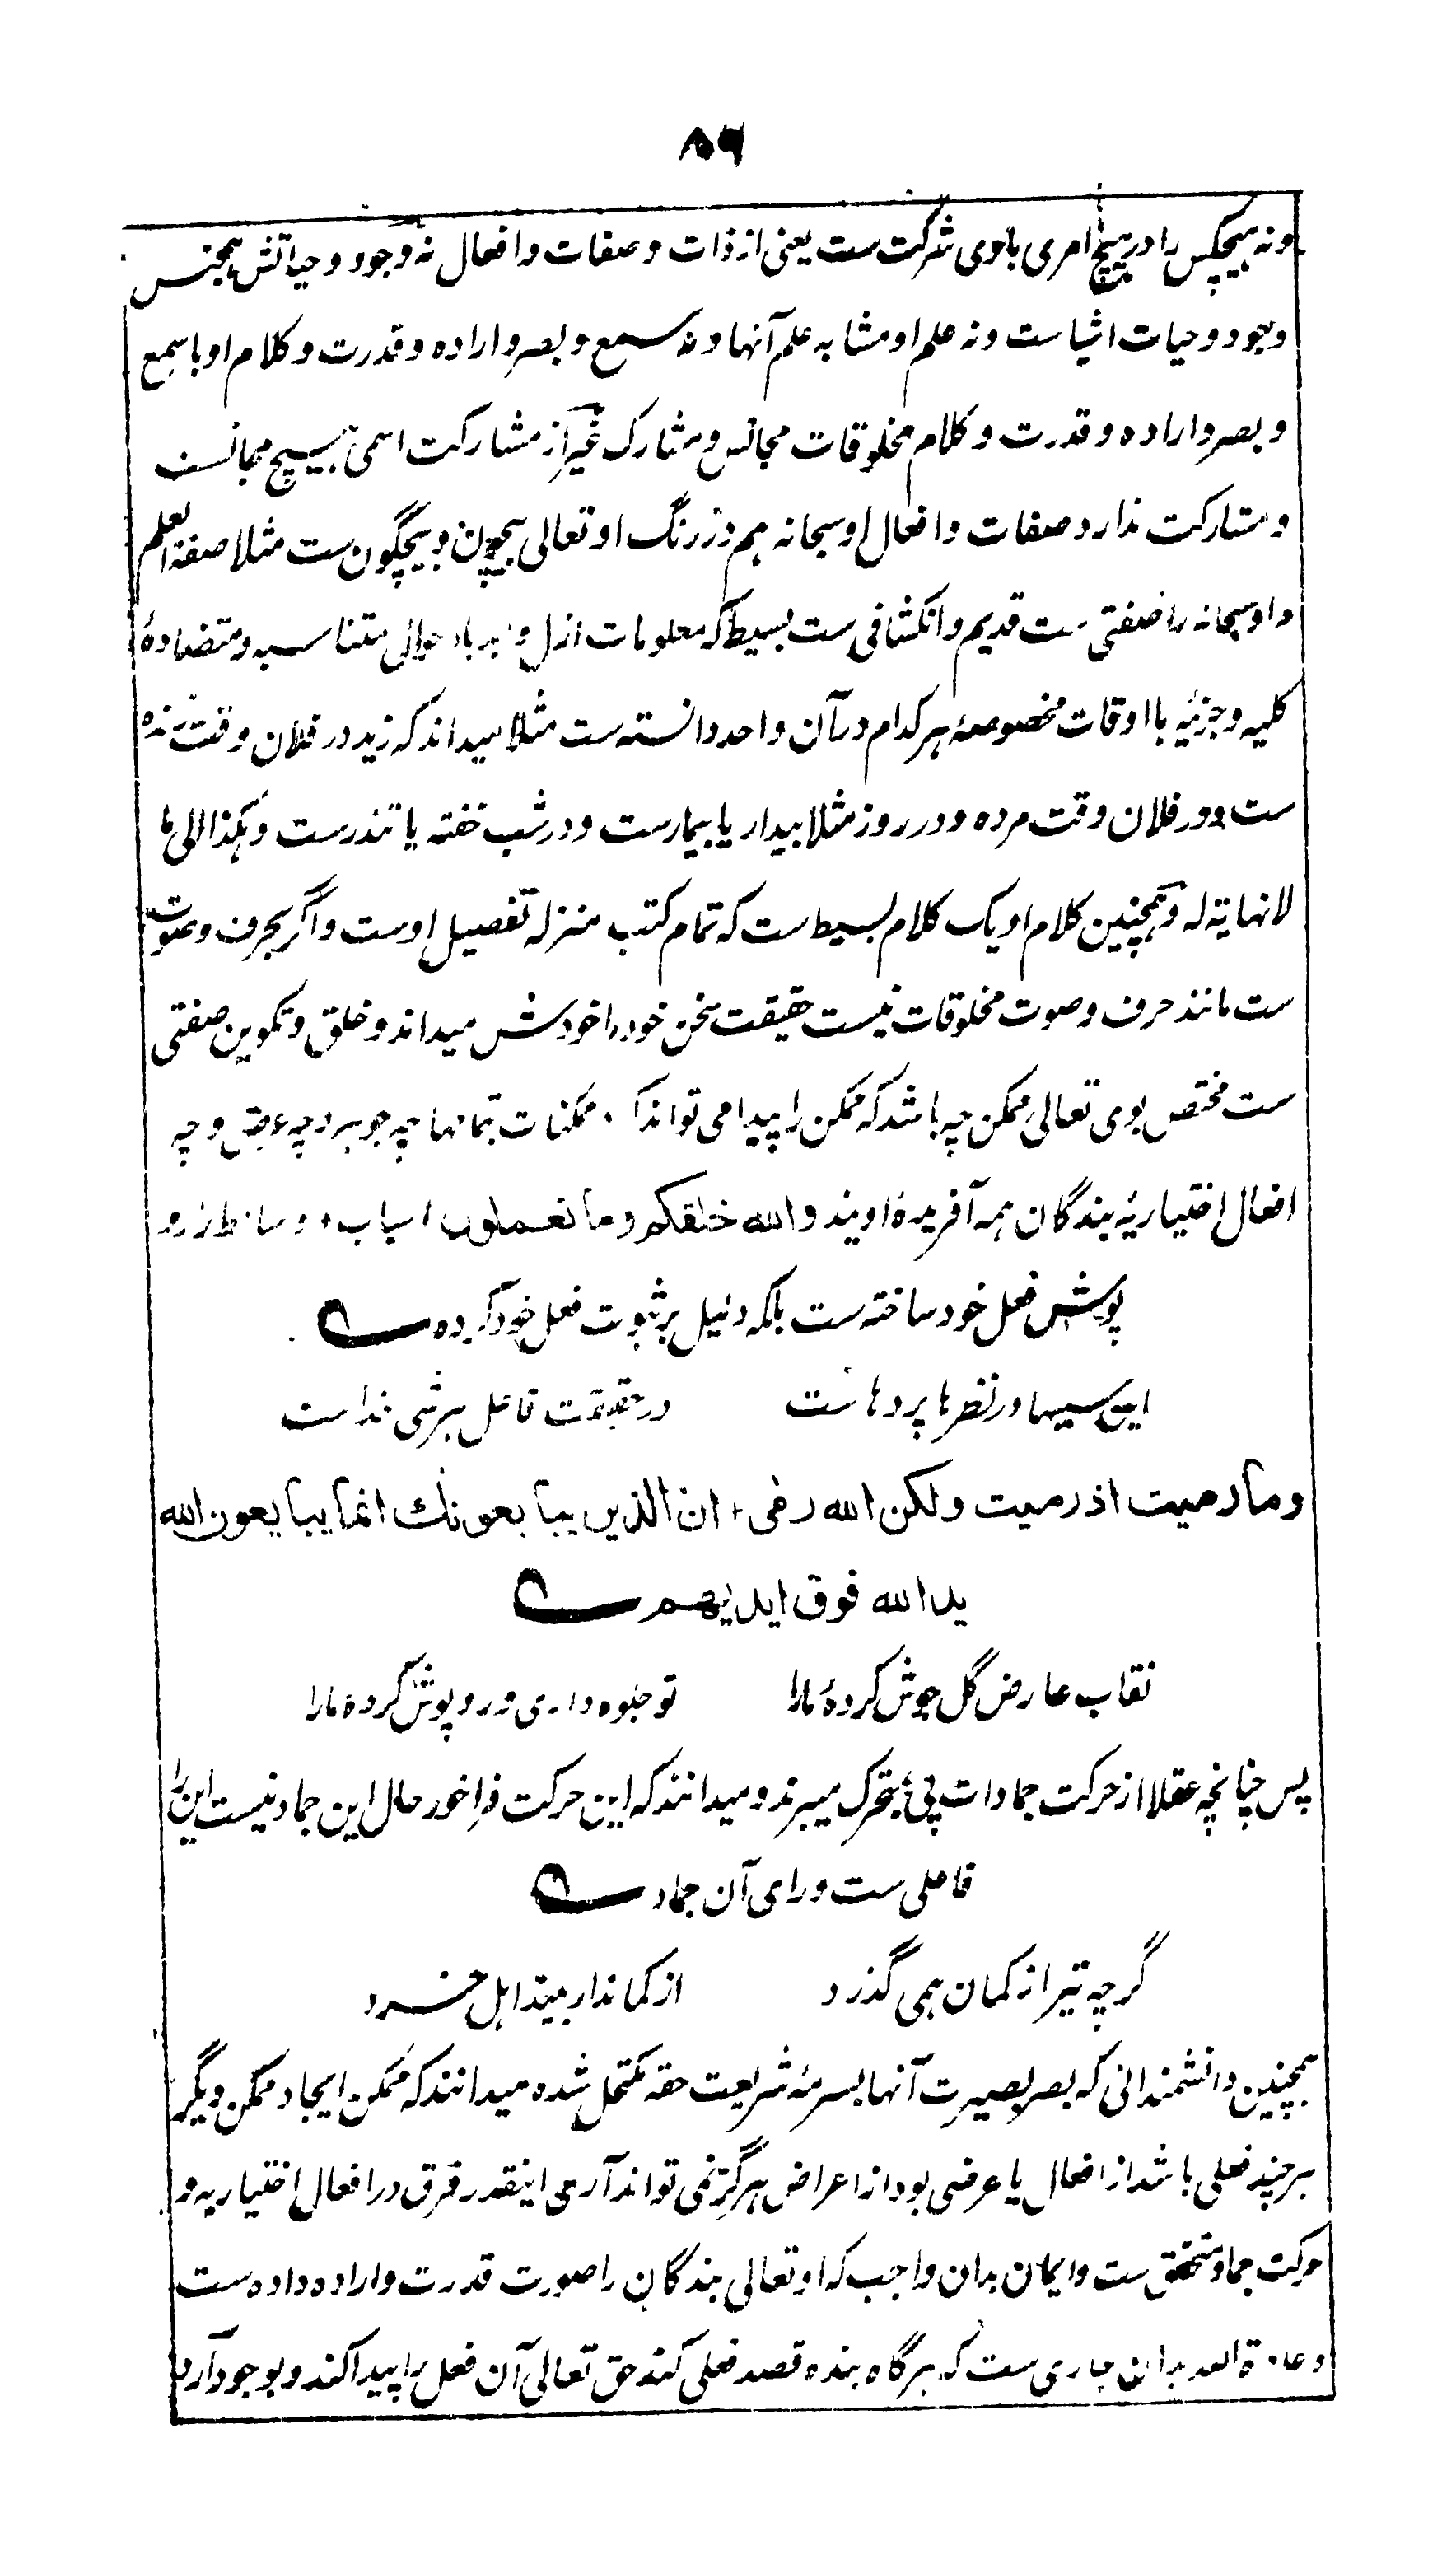 ۸۶
ونه هیچکس را در هیچ امری باوی شرکت ست یعنی از ذات و صفات و افعال نه وجود و حیاتش همجنس
وجود و حیات اشیاست و نه علم او مشابه علم آنها و نه سمع و بصر و اراده و قدرت و کلام او با سمع
و بصر و اراده و قدرت و کلام مخلوقات مجانس و مشارک غیر از مشارکت اسمی هیچ مجانست
و مشارکت ندارد صفات و افعال او سبحانه هم در رنگ او تعالی بیچون و بیچگون ست مثلا صفة العلم
او سبحانه را صفتی ست قدیم و انکشافی ست بسیط که معلومات ازل و ابد باحوال متناسبه و متضاده
کلیه و جزئیه با اوقات مخصوصهٔ هر کدام در آن واحد دانسته ست مثلا میداند که زید در فلان وقت زنده
ست و در فلان وقت مرده و در روز مثلا بیدار یا بیمارست و در شب خفته یا تندرست و هکذا الی ما
لا نهایة له و همچنین کلام او یک کلام بسیط ست که تمام کتب منزله تفصیل اوست و اگر بحرف و صوت
ست مانند حرف و صوت مخلوقات نیست حقیقت سخن خود را خودش میداند و خلق و تکوین صفتی
ست مختص بوی تعالی ممکن چه باشد که ممکن را پیدا می تواند کرد ممکنات بتمامها چه جوهر و چه عرض و چه
افعال اختیاریهٔ بندگان همه آفریدهٔ اویند والله خلقکم وما تعملون اسباب و وسائط را رو
پوش فعل خود ساخته ست بلکه دلیل بر ثبوت فعل خود کرده ؎
این سببها در نظرها پردهاست در حقیقت فاعل هر شی خداست
وما رمیت اذ رمیت ولکن الله رمی ان الذین یبایعونك انما یبایعون الله
ید الله فوق ایدیهم ؎
نقاب عارض گل جوش کردهٔ ما را تو جلوه داری و رو پوش کردهٔ ما را
پس چنانچه عقلا از حرکت جمادات پی بمحرک میبرند و میدانند که این حرکت فراخور حال این جماد نیست این را
فاعلی ست ورای آن جماد ؎
گرچه تیر از کمان همی گذرد از کماندار بیند اهل خرد
همچنین دانشمندانی که بصر بصیرت آنها بسرمهٔ شریعت حقه مکتحل شده میدانند که ممکن ایجاد ممکن دیگر
هر چند فعلی باشد از افعال یا عرضی بود از اعراض هرگز نمی تواند آری اینقدر فرق در افعال اختیاریه و
حرکت جماد متحقق ست و ایمان بدان واجب که او تعالی بندگان را صورت قدرت و اراده داده ست
و عادة الله بدان جاری ست که هرگاه بنده قصد فعلی کند حق تعالی آن فعل را پیدا کند و بوجود آرد